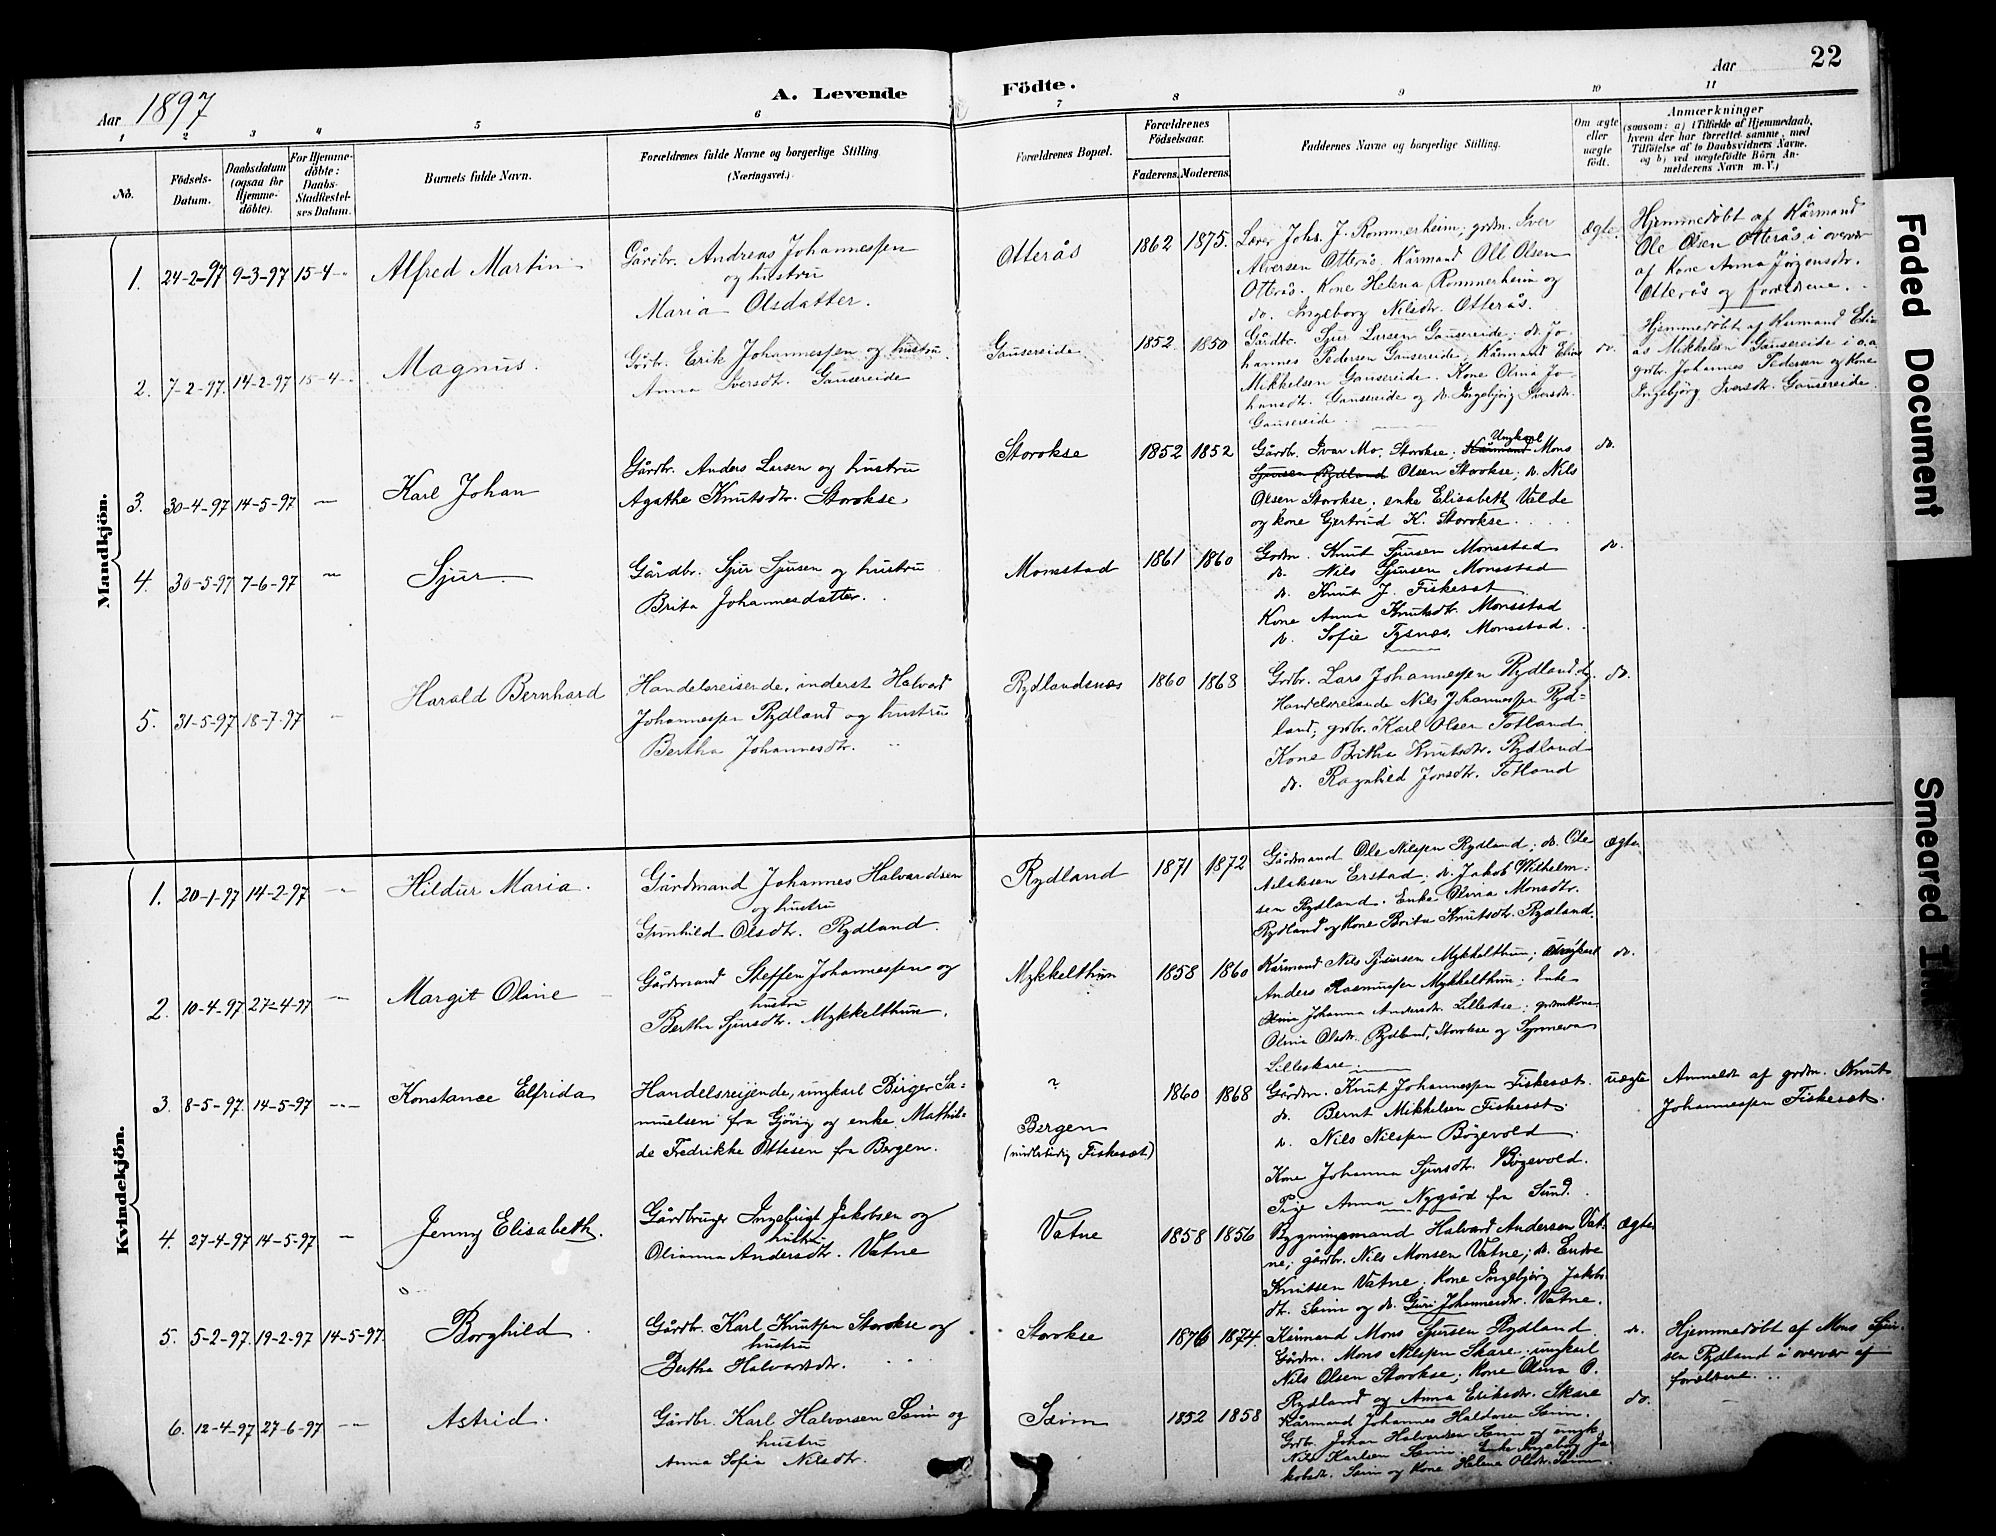 22
Aar 1897
A. Levende
Födte.
Aar
1 2 3 4 5 6 7 8 9 10 11
No.
Födsels-
Datum.
Daabsdatum
(ogsaa for
Hjemme-
döbte).
For Hjemme-
döbte:
Daabs-
Stadfæstel-
ses Datum.
Barnets fulde Navn.
Forældrenes fulde Navne og borgerlige Stilling
(Næringsvei.)
Forældrenes Bopæl.
Forældrenes
Födselsaar.
Faderens.
Moderens.
Faddernes Navne og borgerlige Stilling.
Om ægte
eller
uægte
födt.
Anmærkninger
(saasom: a) i Tilfælde af Hjemmedaab,
hvem der har forrettet samme, med
Tilföielse af to Daabsvidners Navne.
og b) ved uægtefödte Börn An-
melderens Navn m. V.)
Mandkjön.
1. 24-2-97 9-3-97 15-4-"
Alfred Martin
Gårdbr. Andreas Johannessen
og hustru
Maria Olsdatter.
Otterås
1862 1875.
Lærer Johs. J. Rommerheim, grdm. Iver
Alversen Otterås. Kårmand Ole Olsen
Otterås. Kone Helena Rommerheim og
do. Ingeborg Nilsdtr. Otterås.
ægte.
Hjemmedøbt af Kårmand
Ole Olsen Otterås i overvær
af Kone Anna Jørgensdtr.
Otterås og forældrene.
2. 7-2-97. 14-2-97 15-4-"
Magnus.
Grdbr. Erik Johannessen og hustru
Anna Iversdtr. Gausereide
Gausereide
1852 1850
Gårdbr. Sjur Larsen Gausereide, do. Jo-
hannes Pedersen Gausereide, Kårmand Elias
Mikkelsen Gausereide. Kone Olina Jo-
hansdtr. Gausereide og do. Ingebjørg Iversdtr.
Gausereide
do.
Hjemmedøbt af Kårmand Eli-
as Mikkelsen Gausereide i o.a.
grdbr. Johannes Pedersen og Kone
Ingebjørg Iversdtr. Gausereide.
3. 30-4-97 14-5-97 "
Karl Johan
Gårdbr. Anders Larsen og hustru
Agathe Knutsdtr. Storokse
Storokse
1852 1852
Ungkarl
Gårdbr. Ivar Mo, Storokse; Kårmand Mons
Sjursen Rydland Olsen Storokse; do. Nils
Olsen Storokse; enke Elisabeth Valde
og kone Gjertrud K. Storokse.
do.
4. 30-5-97 7-6-97 "
Sjur
Gårdbr. Sjur Sjursen og hustru
Brita Johannesdatter.
Monsstad
1861 1860
Grdm. Knut Sjursen Monsstad
do. Nils Sjursen Monsstad
do. Knut J. Fiskeset
Kone Anna Knutsdtr. Monsstad
do. Sofie Tysnes, Monsstad.
do.
5. 31-5-97 18-7-97 "
Harald Bernhard
Handelsreisende, inderst Halvard
Johannessen Rydland og hustru
Bertha Johannesdtr.
Rydlandsnes
1860 1868
Grdbr. Lars Johannessen Rydland,
Handelsreisende Nils Johannessen Ryd-
land, grdbr. Karl Olsen Totland
Kone Britha Knutsdtr. Rydland
do. Ragnhild Jonsdtr. Totland
do.
Kvindekjön.
1. 20-1-97 14-2-97 "
Hildur Maria.
Gårdmand Johannes Halvardsen
og hustru
Gunhild Olsdtr. Rydland.
Rydland
1871 1872
Gårdmand Ole Nilssen Rydland; do. Ole
Aslaksen Erstad; do. Jakob Wilhelm-
sen Rydland. Enke Olina Monsdtr.
Rydland og Kone Brita Knutsdtr. Rydland.
ægte
2. 10-4-97 27-4-97 "
Margit Oline
Gårdmand Steffen Johannessen og
hustru
Bertha Sjursdtr. Mykkelthun.
Mykkelthun
1858 1860
Kårmand Nils Sjursen Mykkelthun; Ungkarl
Anders Rasmussen Mykkelthun; Enke
Johanna Andersdtr. Lilleokse; grdm.kone
Olina Olsdtr. Rydland, Storokse og Synneva
Lilleskare
do.
3. 8-5-97. 14-5-97 "
Konstance Elfrida
Handelsreisende, ungkarl Birger Sa-
muelsen fra Gjøvig og enke Mathil-
de Fredrikke Ottesen fra Bergen.
?
Bergen
(midlertidig Fiskeset)
1860 1868
Gårdm. Knut Johannessen Fiskeset.
do. Bernt Mikkelsen Fiskeset
do. Nils Nilssen Bøgevold
Kone Johanna Sjursdtr. Bøgevold.
Pige Anna Nygård fra Sund.
uægte
Anmeldt af grdm. Knut
Johannessen Fiskeset.
4. 27-4-97 14-5-97 "
Jenny Elisabeth.
Gårdbruger Ingebrigt Jakobsen og
hustru
Olianna Andersdtr. Vatne
Vatne
1858 1856
Bygningsmand Halvard Andersen Vat-
ne; gårdbr. Nils Monsen Vatne; do. Endre
Knutsen Vatne; Kone Ingebjørg Jakobs-
dtr. Seim og do. Guri Johannesdtr. Vatne.
ægte
5. 5-2-97. 19-2-97 14-5-97.
Borghild
Gårdbr. Karl Knutsen Storokse og
hustru
Bertha Halvardsdtr.
Storokse
1876 1874.
Kårmand Mons Sjursen Rydland.
Gårdm. Mons Nilssen Skare; ungkarl
Nils Olsen Storokse; Kone Olina O.
Rydland og Anna Eriksdtr. Skare
do.
Hjemmedøbt af Mons Sjur-
sen Rydland i overvær af
forældrene.
6. 12-4-97 27-6-97 "
Astrid.
Gårdbr. Karl Halvorsen Seim og
hustru
Anna Sofia Nilsdtr.
Seim
1852 1858
Kårmand Johannes Haldorsen Seim.
Grdbr. Johan Halvorsen Seim og ungk.
Nils Karlsen Seim. Enke Ingeborg Ja-
kobsdtr. Seim og Kone Helena Olsdtr. Seim
do.
Faded Document
Smeared